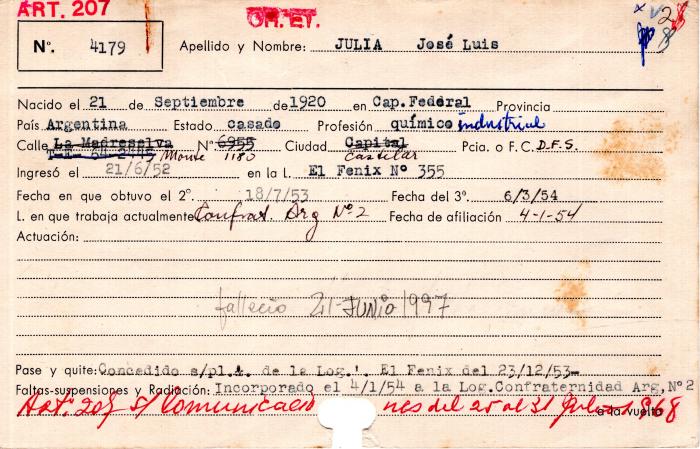 ART. 207
OR. ET.
Nº. 4179
Apellido y Nombre: JULIA José Luis
Nacido el 21 de Septiembre de 1920 en Cap. Federal Provincia
País Argentina Estado casado Profesión químico industrial
Calle La Madreselva Nº 6955 Ciudad Capital Pcia. o F.C. D.F.S.
Monte 1180 Castelar
Ingresó el 21/6/52 en la L. El Fenix Nº 355
Fecha en que obtuvo el 2º. 18/7/53 Fecha del 3º. 6/3/54
L. en que trabaja actualmente Confrat. Arg Nº 2 Fecha de afiliación 4-1-54
Actuación:
fallecio 21-JUNIO 1997
Pase y quite: Concedido s/pl.t. de la Log.'. El Fenix del 23/12/53-
Faltas-suspensiones y Radiación: Incorporado el 4/1/54 a la Log.Confraternidad Arg.Nº2
Art. 207 s/ Comunicacio nes del 25 al 31 Julio 1968
a la vuelta